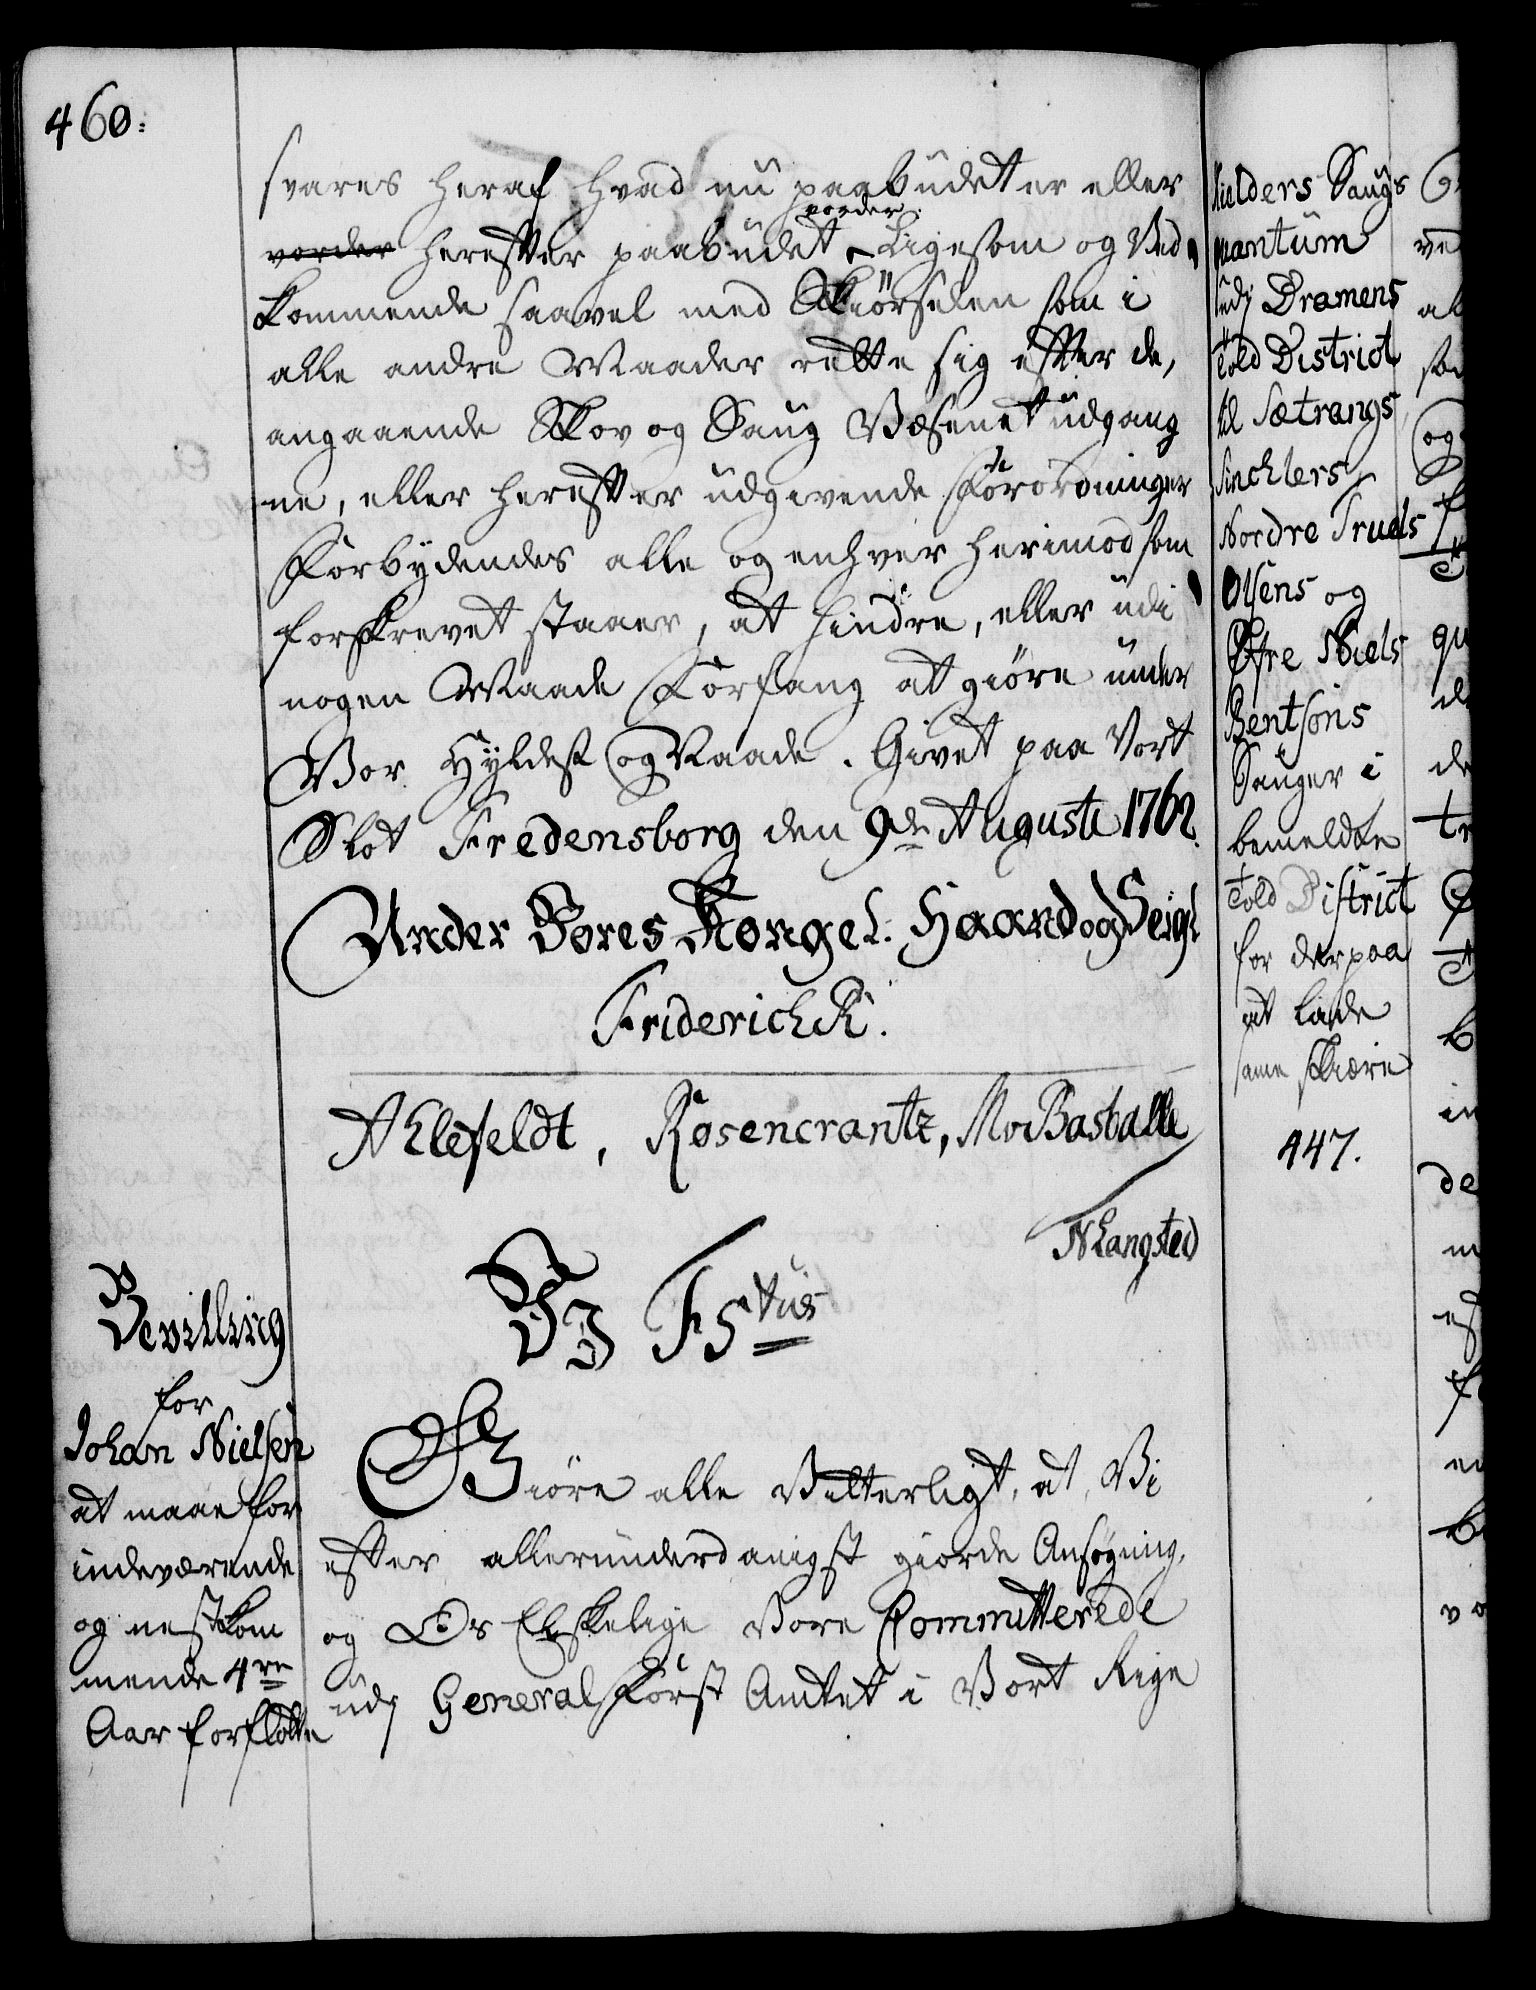 460.
svares heraf hvad nu paabudet er eller
vorder
vorder herefter paabudet Ligesom og Ved-
kommende saavel med Skiörselen som i
alle andre Maader rette sig efter de,
angaaende Skov og Saug Væsenet udgang
ne, eller herefter udgivende Forordninger
Forbydendes alle og enhver herimod som
forskrevet staaer, at hindre, eller udi
nogen Maade Forfang at giöre under
Vor Hyldest og Naade. Givet paa Vort
Slot Fredensborg den 9de Augusti 1762.
Under Vores Kongel: Haand og Seigl
Friderich R.
Ahlefeldt, Rosencrantz, MvBasballe
NLangsted
Vj F5tus
Bevilling
for
Johan Nielsen
at maae for
indeværende
og nestkom
mende 4re
Aar forflötte
Giöre alle Vitterligt, at, Vi
efter allerunderdanigst giorde Ansögning,
og Os Elskelige Vore Committerede
udj General Forst Amtet i Vort Rige
Kielders Saugs
quantum
udj Dramens
Told District
til Sætrangs
Nordre Truels
Olsens og
Øfre Niels
Bentsöns
Sauger i
bemeldte
Told District
for derpaa
at lade
same skiære
447.